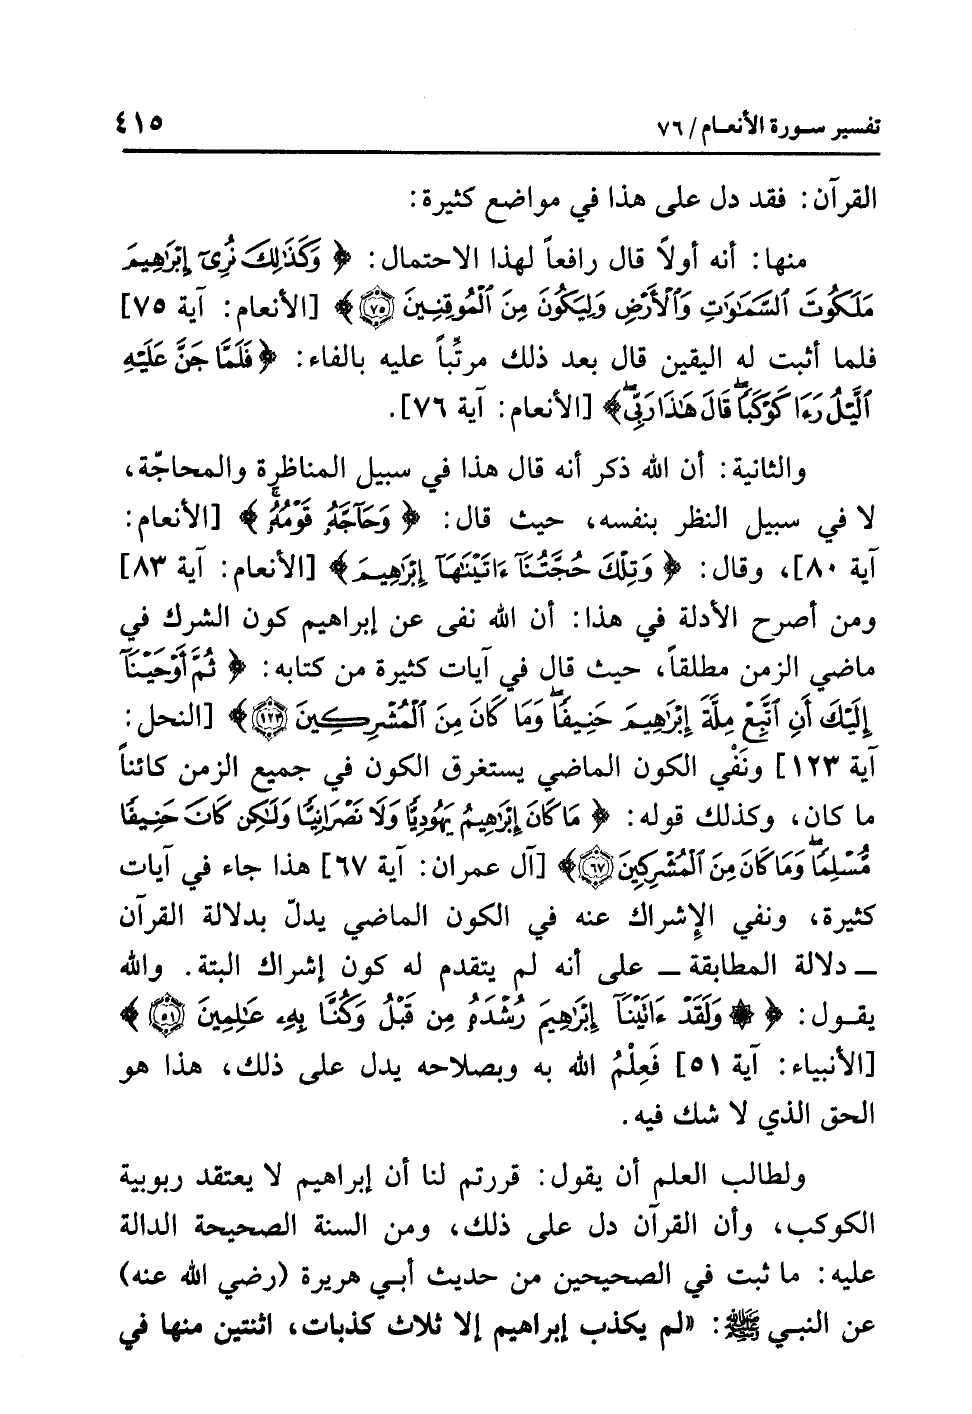 تفسير سورة الأنعام / ٧٦ ٤١٥
القرآن: فقد دل على هذا في مواضع كثيرة:
منها: أنه أولاً قال رافعاً لهذا الاحتمال: ﴿ وَكَذَٰلِكَ نُرِىٓ إِبْرَٰهِيمَ
مَلَكُوتَ ٱلسَّمَٰوَٰتِ وَٱلْأَرْضِ وَلِيَكُونَ مِنَ ٱلْمُوقِنِينَ ٧٥ ﴾ [الأنعام: آية ٧٥]
فلما أثبت له اليقين قال بعد ذلك مرتِّباً عليه بالفاء: ﴿ فَلَمَّا جَنَّ عَلَيْهِ
ٱلَّيْلُ رَءَا كَوْكَبًا ۖ قَالَ هَٰذَا رَبِّى ۖ ﴾ [الأنعام: آية ٧٦].
والثانية: أن الله ذكر أنه قال هذا في سبيل المناظرة والمحاجّة،
لا في سبيل النظر بنفسه، حيث قال: ﴿ وَحَآجَّهُۥ قَوْمُهُۥ ۚ ﴾ [الأنعام:
آية ٨٠]، وقال: ﴿ وَتِلْكَ حُجَّتُنَآ ءَاتَيْنَٰهَآ إِبْرَٰهِيمَ ﴾ [الأنعام: آية ٨٣]
ومن أصرح الأدلة في هذا: أن الله نفى عن إبراهيم كون الشرك في
ماضي الزمن مطلقاً، حيث قال في آيات كثيرة من كتابه: ﴿ ثُمَّ أَوْحَيْنَآ
إِلَيْكَ أَنِ ٱتَّبِعْ مِلَّةَ إِبْرَٰهِيمَ حَنِيفًا ۖ وَمَا كَانَ مِنَ ٱلْمُشْرِكِينَ ١٢٣ ﴾ [النحل:
آية ١٢٣] ونَفْي الكون الماضي يستغرق الكون في جميع الزمن كائناً
ما كان، وكذلك قوله: ﴿ مَا كَانَ إِبْرَٰهِيمُ يَهُودِيًّا وَلَا نَصْرَانِيًّا وَلَٰكِن كَانَ حَنِيفًا
مُّسْلِمًا ۖ وَمَا كَانَ مِنَ ٱلْمُشْرِكِينَ ٦٧ ﴾ [آل عمران: آية ٦٧] هذا جاء في آيات
كثيرة، ونفي الإشراك عنه في الكون الماضي يدلّ بدلالة القرآن
ـ دلالة المطابقة ـ على أنه لم يتقدم له كون إشراك البتة. والله
يقول: ﴿ ۞ وَلَقَدْ ءَاتَيْنَآ إِبْرَٰهِيمَ رُشْدَهُۥ مِن قَبْلُ وَكُنَّا بِهِۦ عَٰلِمِينَ ٥١ ﴾
[الأنبياء: آية ٥١] فَعِلْمُ الله به وبصلاحه يدل على ذلك، هذا هو
الحق الذي لا شك فيه.
ولطالب العلم أن يقول: قررتم لنا أن إبراهيم لا يعتقد ربوبية
الكوكب، وأن القرآن دل على ذلك، ومن السنة الصحيحة الدالة
عليه: ما ثبت في الصحيحين من حديث أبي هريرة (رضي الله عنه)
عن النبي ﷺ: «لم يكذب إبراهيم إلا ثلاث كذبات، اثنتين منها في